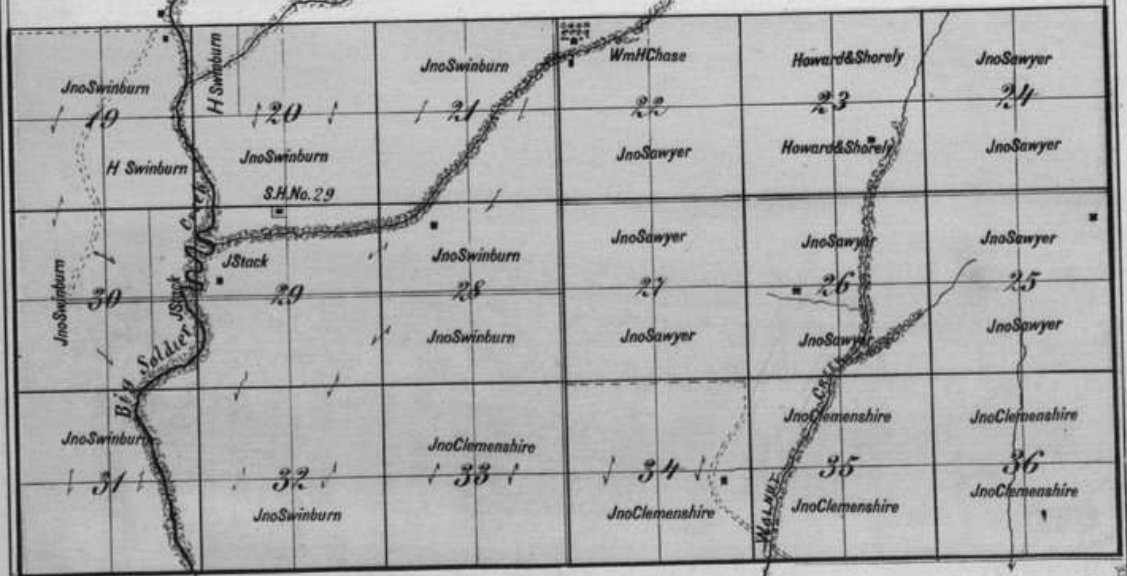 JnoSwinburn
19
H Swinburn
H Swinburn
20
JnoSwinburn
S.H.No.29
JnoSwinburn
21
WmHChase
22
JnoSawyer
Howard&Shorely
23
Howard&Shorely
JnoSawyer
24
JnoSawyer
JnoSwinburn
30
JStack
Big Soldier Creek
JStack
29
JnoSwinburn
28
JnoSwinburn
JnoSawyer
27
JnoSawyer
JnoSawyer
26
JnoSawyer
JnoSawyer
25
JnoSawyer
JnoSwinburn
31
32
JnoSwinburn
JnoClemenshire
33
34
JnoClemenshire
Walnut Crik
JnoClemenshire
35
JnoClemenshire
JnoClemenshire
36
JnoClemenshire